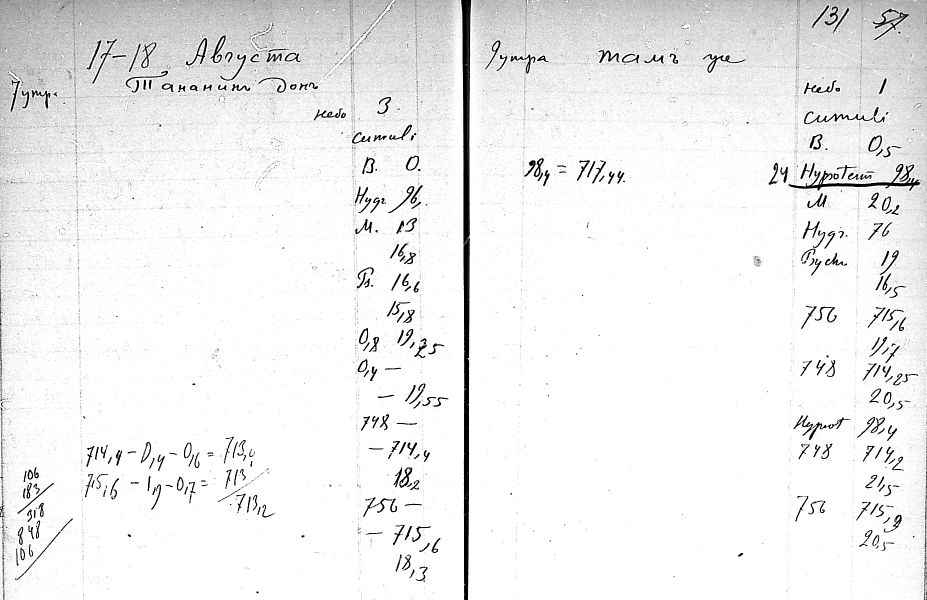 17-18 Августа
7 утра.
Тананинъ донъ
небо 3.
cumuli
В. 0.
Нудг 96,.
М. 13
16,8
Тв. 16,6
15,8
0,8 19,25
0,4 —
— 19,55
748 —
714,4 - 0,4 - 0,6 = 713,4
— 714,4
715,6 - 1,9 - 0,7 = 713,
18,2
713,2
756 —
— 715,6
18,3
106
183
318
848
106
131 57.
9 утра тамъ же
небо 1
cumuli
В. 0,5
98,4 = 717,44.
24 Hypoterm 98,4
М 20,2
Нудг. 76
19
16,5
756 715,6
19,7
748 714,25
20,5
Hypsot 98,4
748 714,2
21,5
756 715,9
20,5